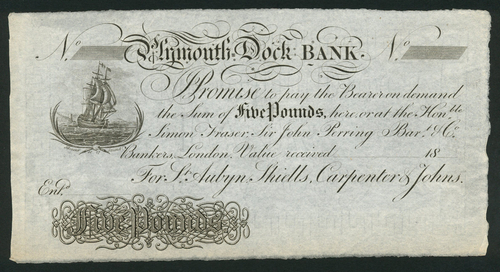 No. Plymouth Dock BANK. No.
I Promise to pay the Bearer on demand
the Sum of Five Pounds, here, or at the Honble
Simon Fraser, Sir John Perring Bart. & Co.
Bankers, London, Value received 18
For St. Aubyn Shiells, Carpenter & Johns.
Entd.
Five Pounds